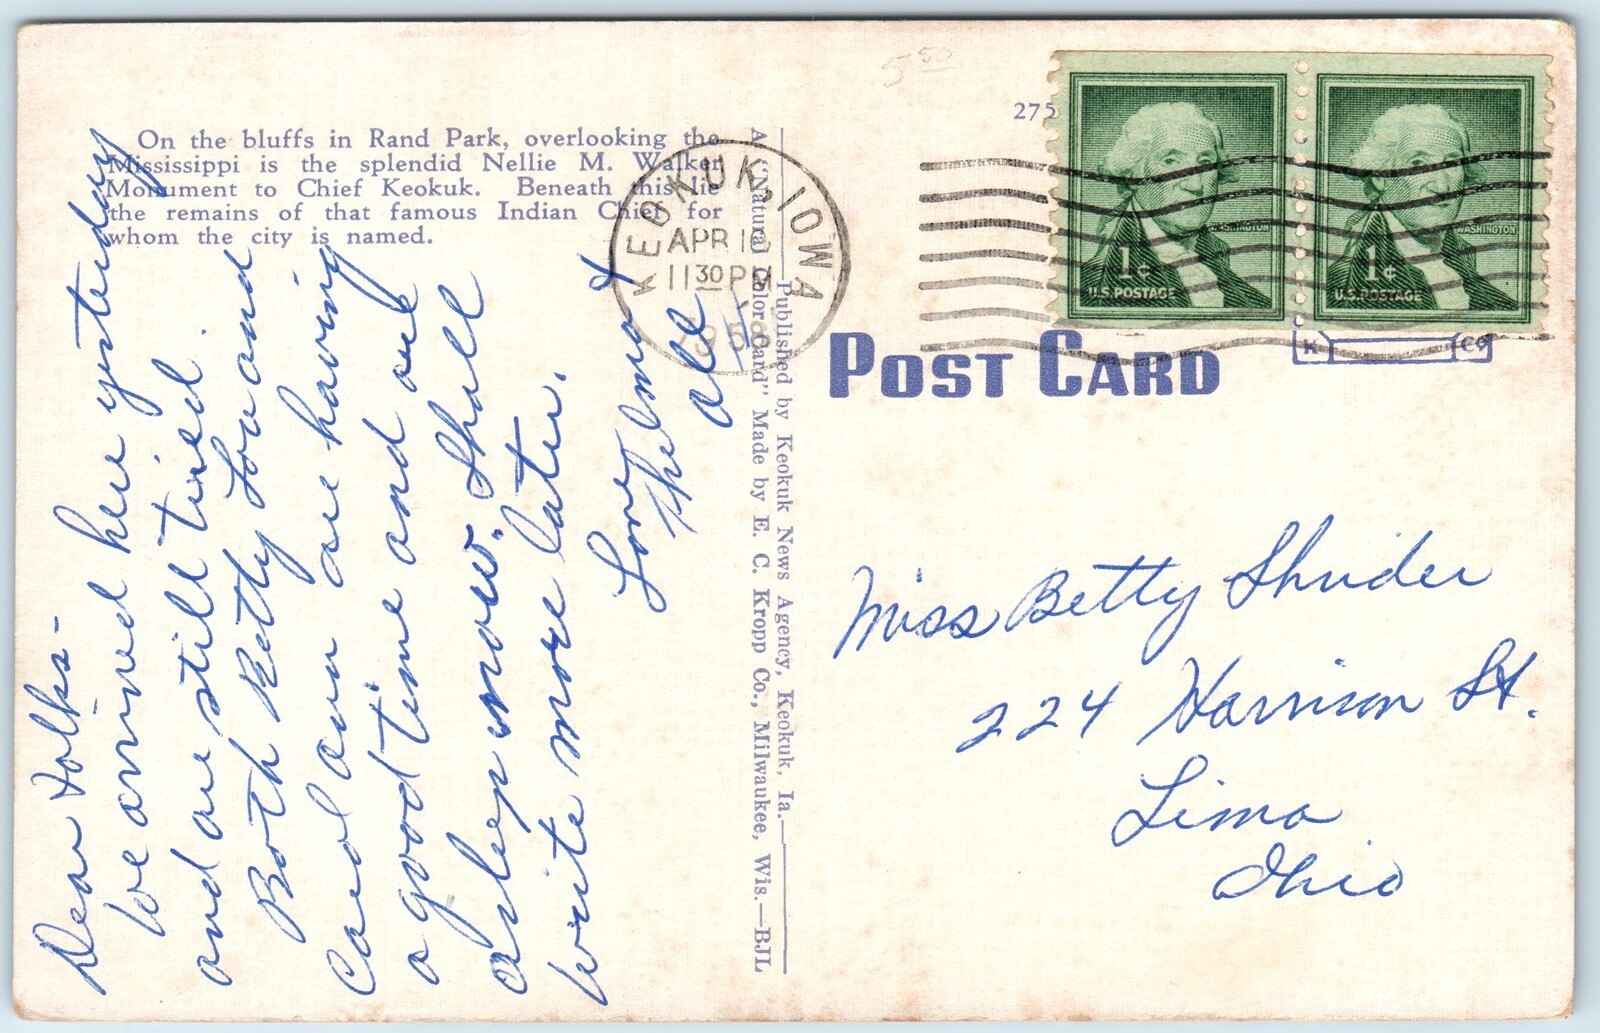 5 50
275
On the bluffs in Rand Park, overlooking the
Mississippi is the splendid Nellie M. Walker
Monument to Chief Keokuk. Beneath this lie
the remains of that famous Indian Chief for
whom the city is named.
KEOKUK, IOWA
APR 1
11 30 PM
1958
1¢
WASHINGTON
U.S. POSTAGE
1¢
WASHINGTON
U.S. POSTAGE
POST CARD
K Co
Published by Keokuk News Agency, Keokuk, Ia.
A "Natural Color Card" Made by E. C. Kropp Co., Milwaukee, Wis.—BJL
Dear Folks -
We arrived here yesterday
and are still tired.
Both Betty Lou and
Carol Ann are having
a good time and are
asleep now. Shall
write more later.
Love
Thelma &
all
Miss Betty Shrider
224 Harrison St.
Lima
Ohio